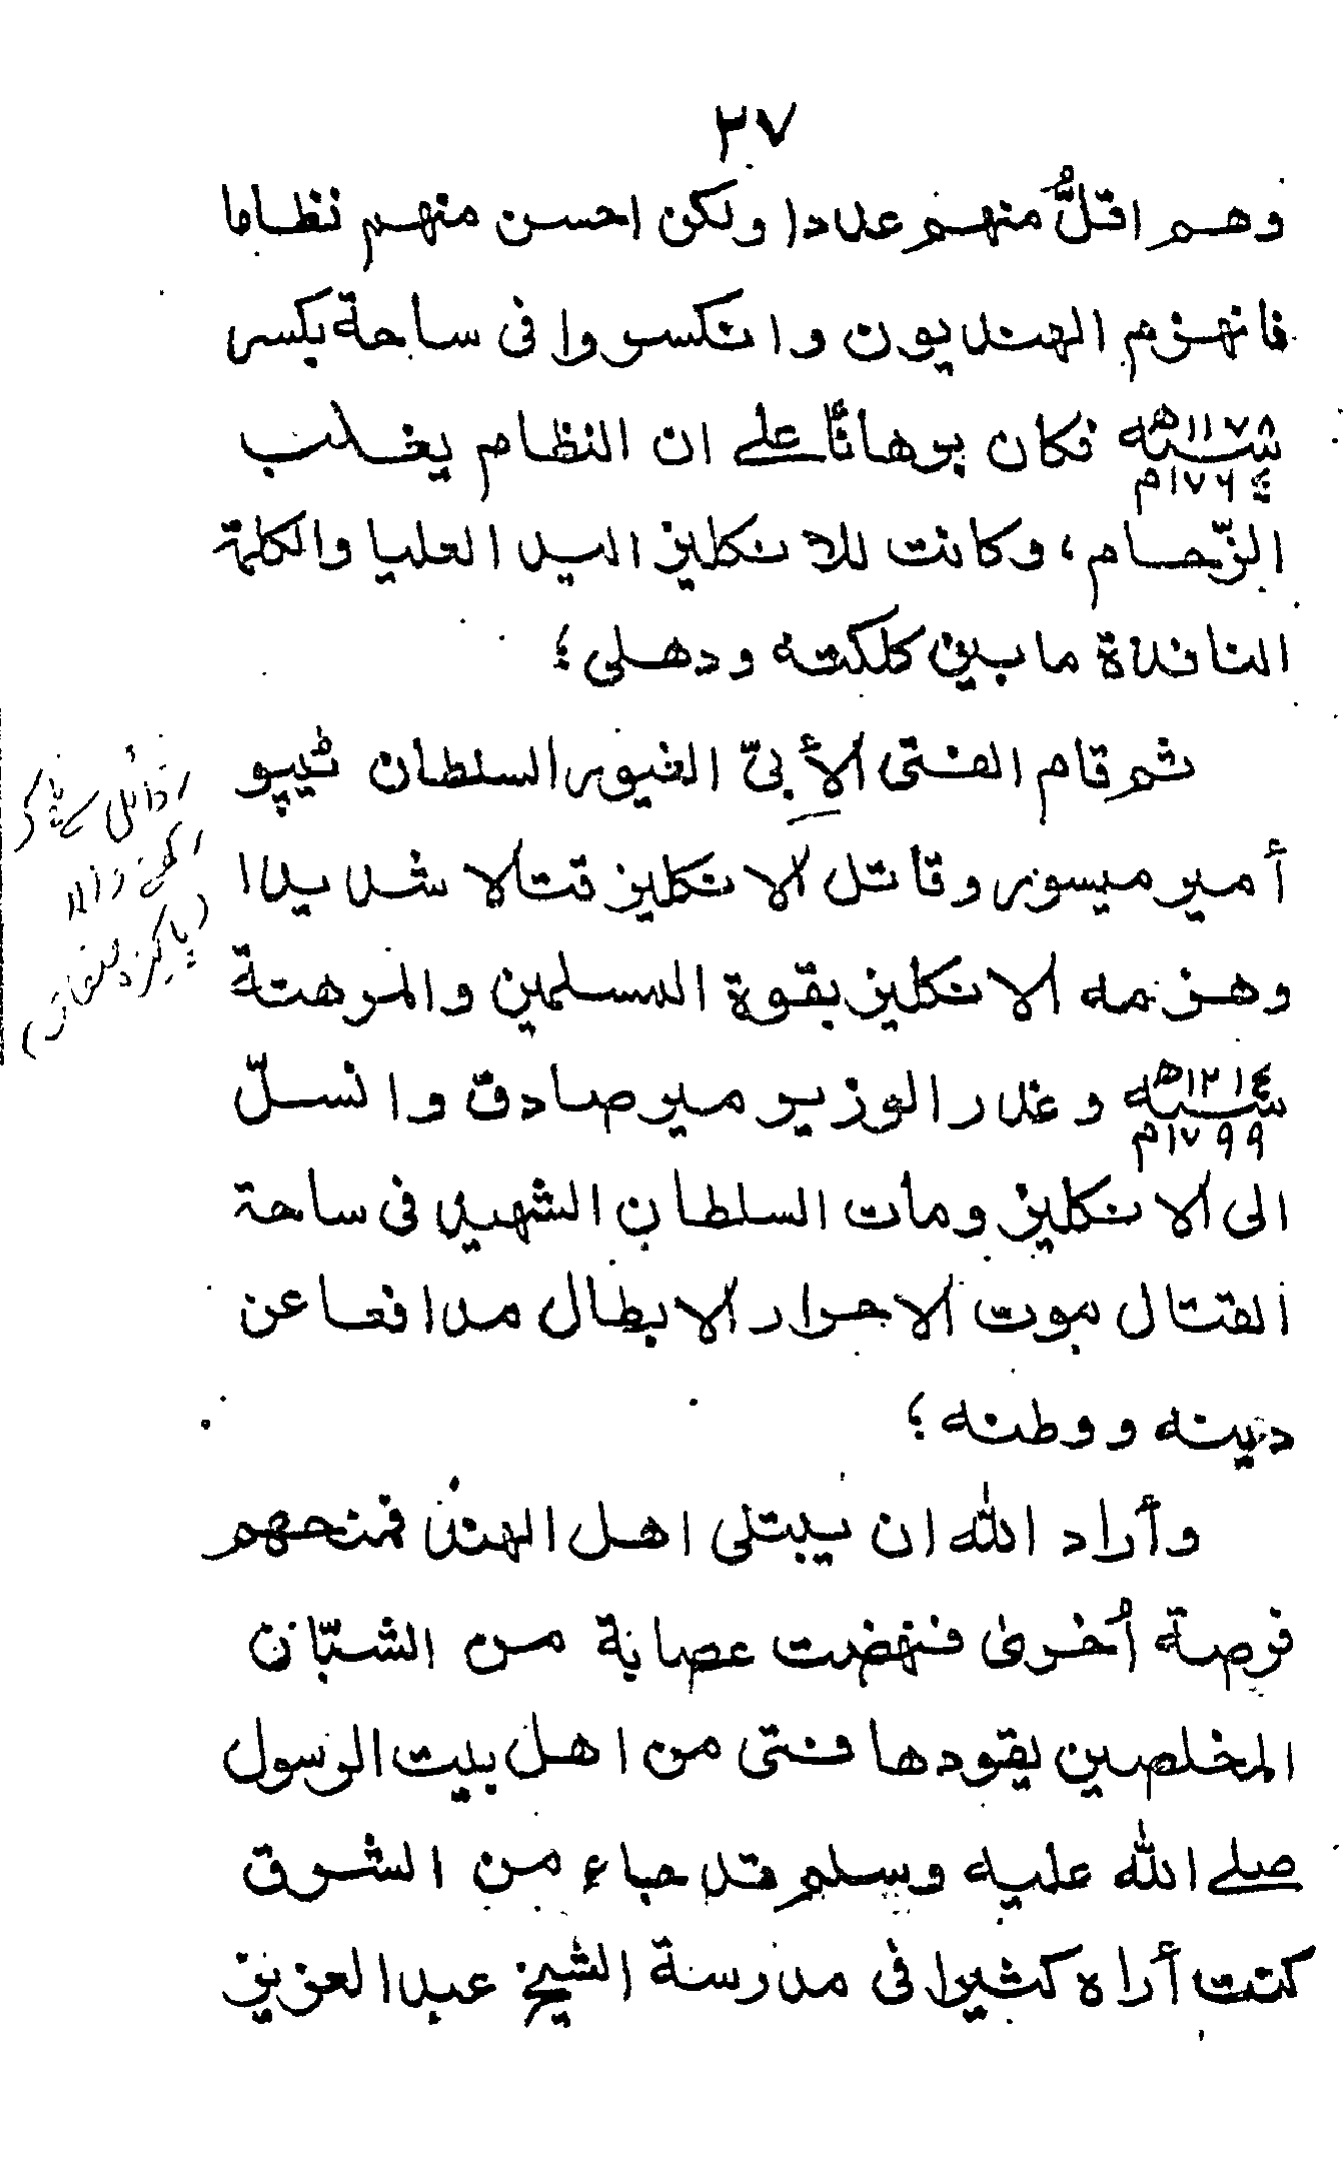 ٢٧
وهم اقلُّ منهم عددا ولكن احسن منهم نظاما
فانهزم الهنديون وانكسروا فى ساحة بكسر
١١٧٨ھ
سنه فكان برهاناً على ان النظام يغلب
١٧٦٤م
الزّحام، وكانت للانكليز اليد العليا والكلمة
النافذة مابين كلكته ودهلى؛
ثم قام الفتى الأبىّ الغيور السلطان ٹيپو
أمير ميسور وقاتل الانكليز قتالا شديدا
وهزمه الانكليز بقوة المسلمين والمرهتة
١٢١٤ھ
سنه وغدر الوزير مير صادق وانسلّ
١٧٩٩م
الى الانكليز ومات السلطان الشهيد فى ساحة
القتال موت الاحرار الابطال مدافعا عن
دينه ووطنه؛
وأراد الله ان يبتلى اهل الهند فمنحهم
فرصة أُخرىٰ فنهضت عصابة من الشبّان
المخلصين يقودها فتى من اهل بيت الرسول
صلے الله عليه وسلم قد جاء من الشرق
كنت أراه كثيرا فى مدرسة الشيخ عبد العزيز